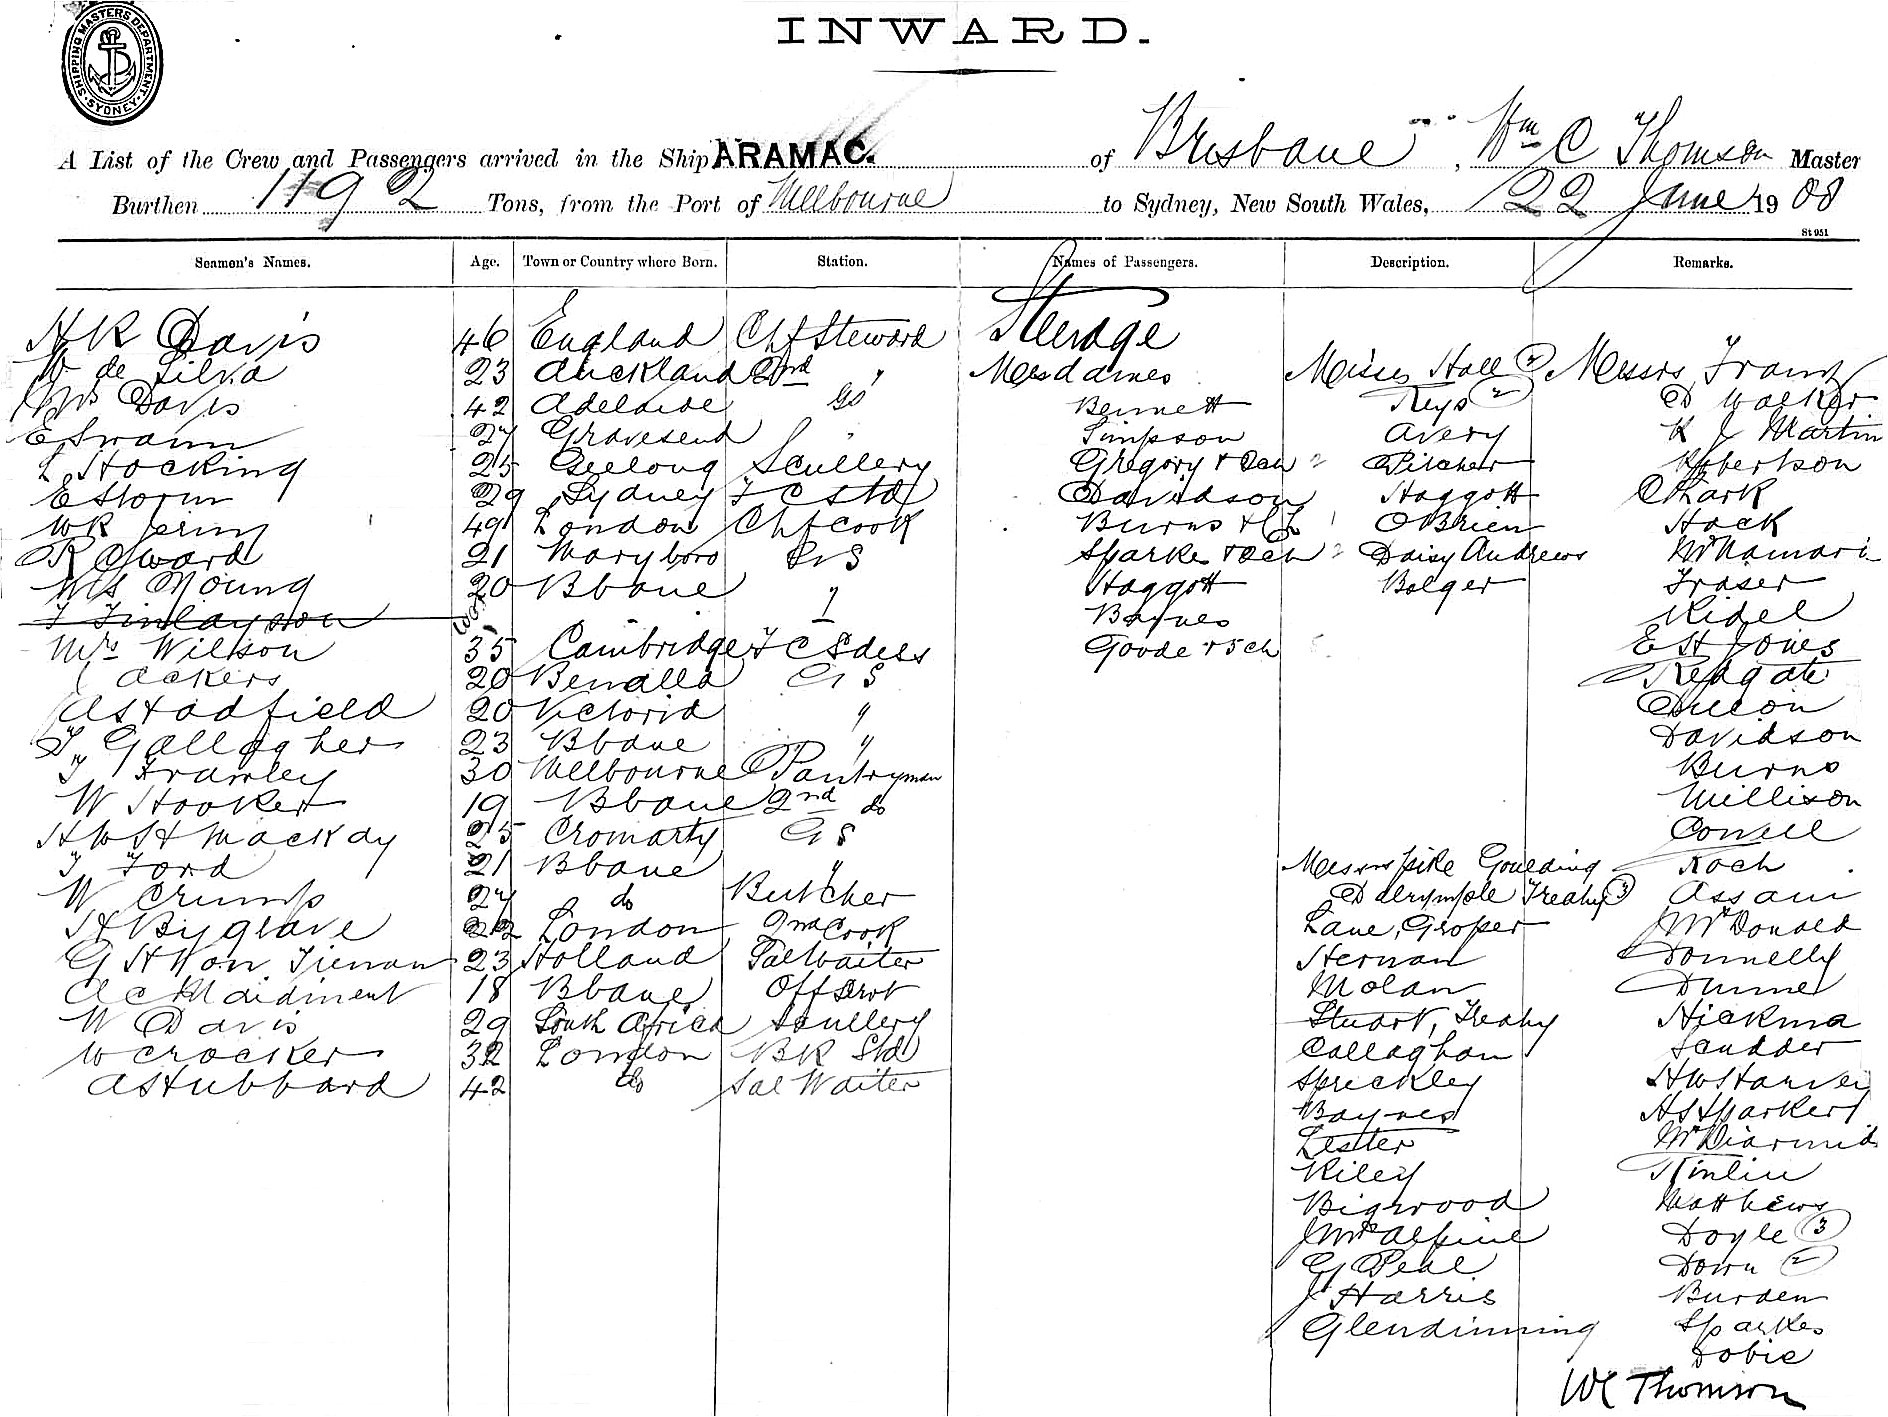 SHIPPING MASTERS DEPARTMENT SYDNEY
INWARD.
A List of the Crew and Passengers arrived in the Ship ARAMAC. of Brisbane, Wm C Thomson Master
Burthen 1192 Tons, from the Port of Melbourne to Sydney, New South Wales, 22 June 1908
St 951
Seamen's Names. Age. Town or Country where Born. Station. Names of Passengers. Description. Remarks.
H R Davis 46 England Chf Steward Steerage
W de Silva 23 Auckland 2nd " Mesdames Misses Hall 2 Messrs Franz
Mrs Davis 42 Adelaide GS Bennett Keys 2 D Walker
E Swann 27 Gravesend " Simpson Avery K J Martin
L Hocking 25 Geelong Scullery Gregory + 2ch 2 Pitcher Robertson
E Storm 29 Sydney F C Std Davidson Haggott Clark
W R Jering 49 London Chf Cook Burns + Ch 1 O'Brien Hock
R Coward 21 Maryboro GS Sparke + 2ch 2 Daisy Andrews McNamara
Wls Young 20 Bbane " Haggott Bolger Fraser
F Finlayson Baynes Kidel
Mrs Wilson 35 Cambridge F C Sdess Goode + 5ch 5 E H Jones
Ackers 20 Benalla G S Redgate
A Stadfield 20 Victoria " Dillon
T Gallagher 23 Bbane " Davidson
T Frawley 30 Melbourne Pantryman Burns
W Hooker 19 Bbane 2nd do Millison
H W H Mackay 25 Cromarty G S Cowell
T Ford 21 Bbane " Messrs Pike Goulding Koch
W Crump 27 do Butcher Dalrymple Treahy 3 Assam
H Bygrave 22 London 2nd Cook Lane, Groper J McDonald
G H Von Tienan 23 Holland Sal Waiter Hernan Donnelly
A C Maidment 18 Bbane Off Srvt Molan Dunne
W Davis 29 South Africa Scullery Stuart, Treahy Hickma
W Crocker 32 London BR Std Callaghan Scudder
A Hubbard 42 do Sal Waiter Spreckley H W Harvey
Baynes H S Sparkes
Lester McDiarmid
Riley
Bigwood Matthews
J McAlpine Doyle 3
G Peal Down 2
J Harris Burden
Glendinning Sparkes
Dobie
WC Thomson